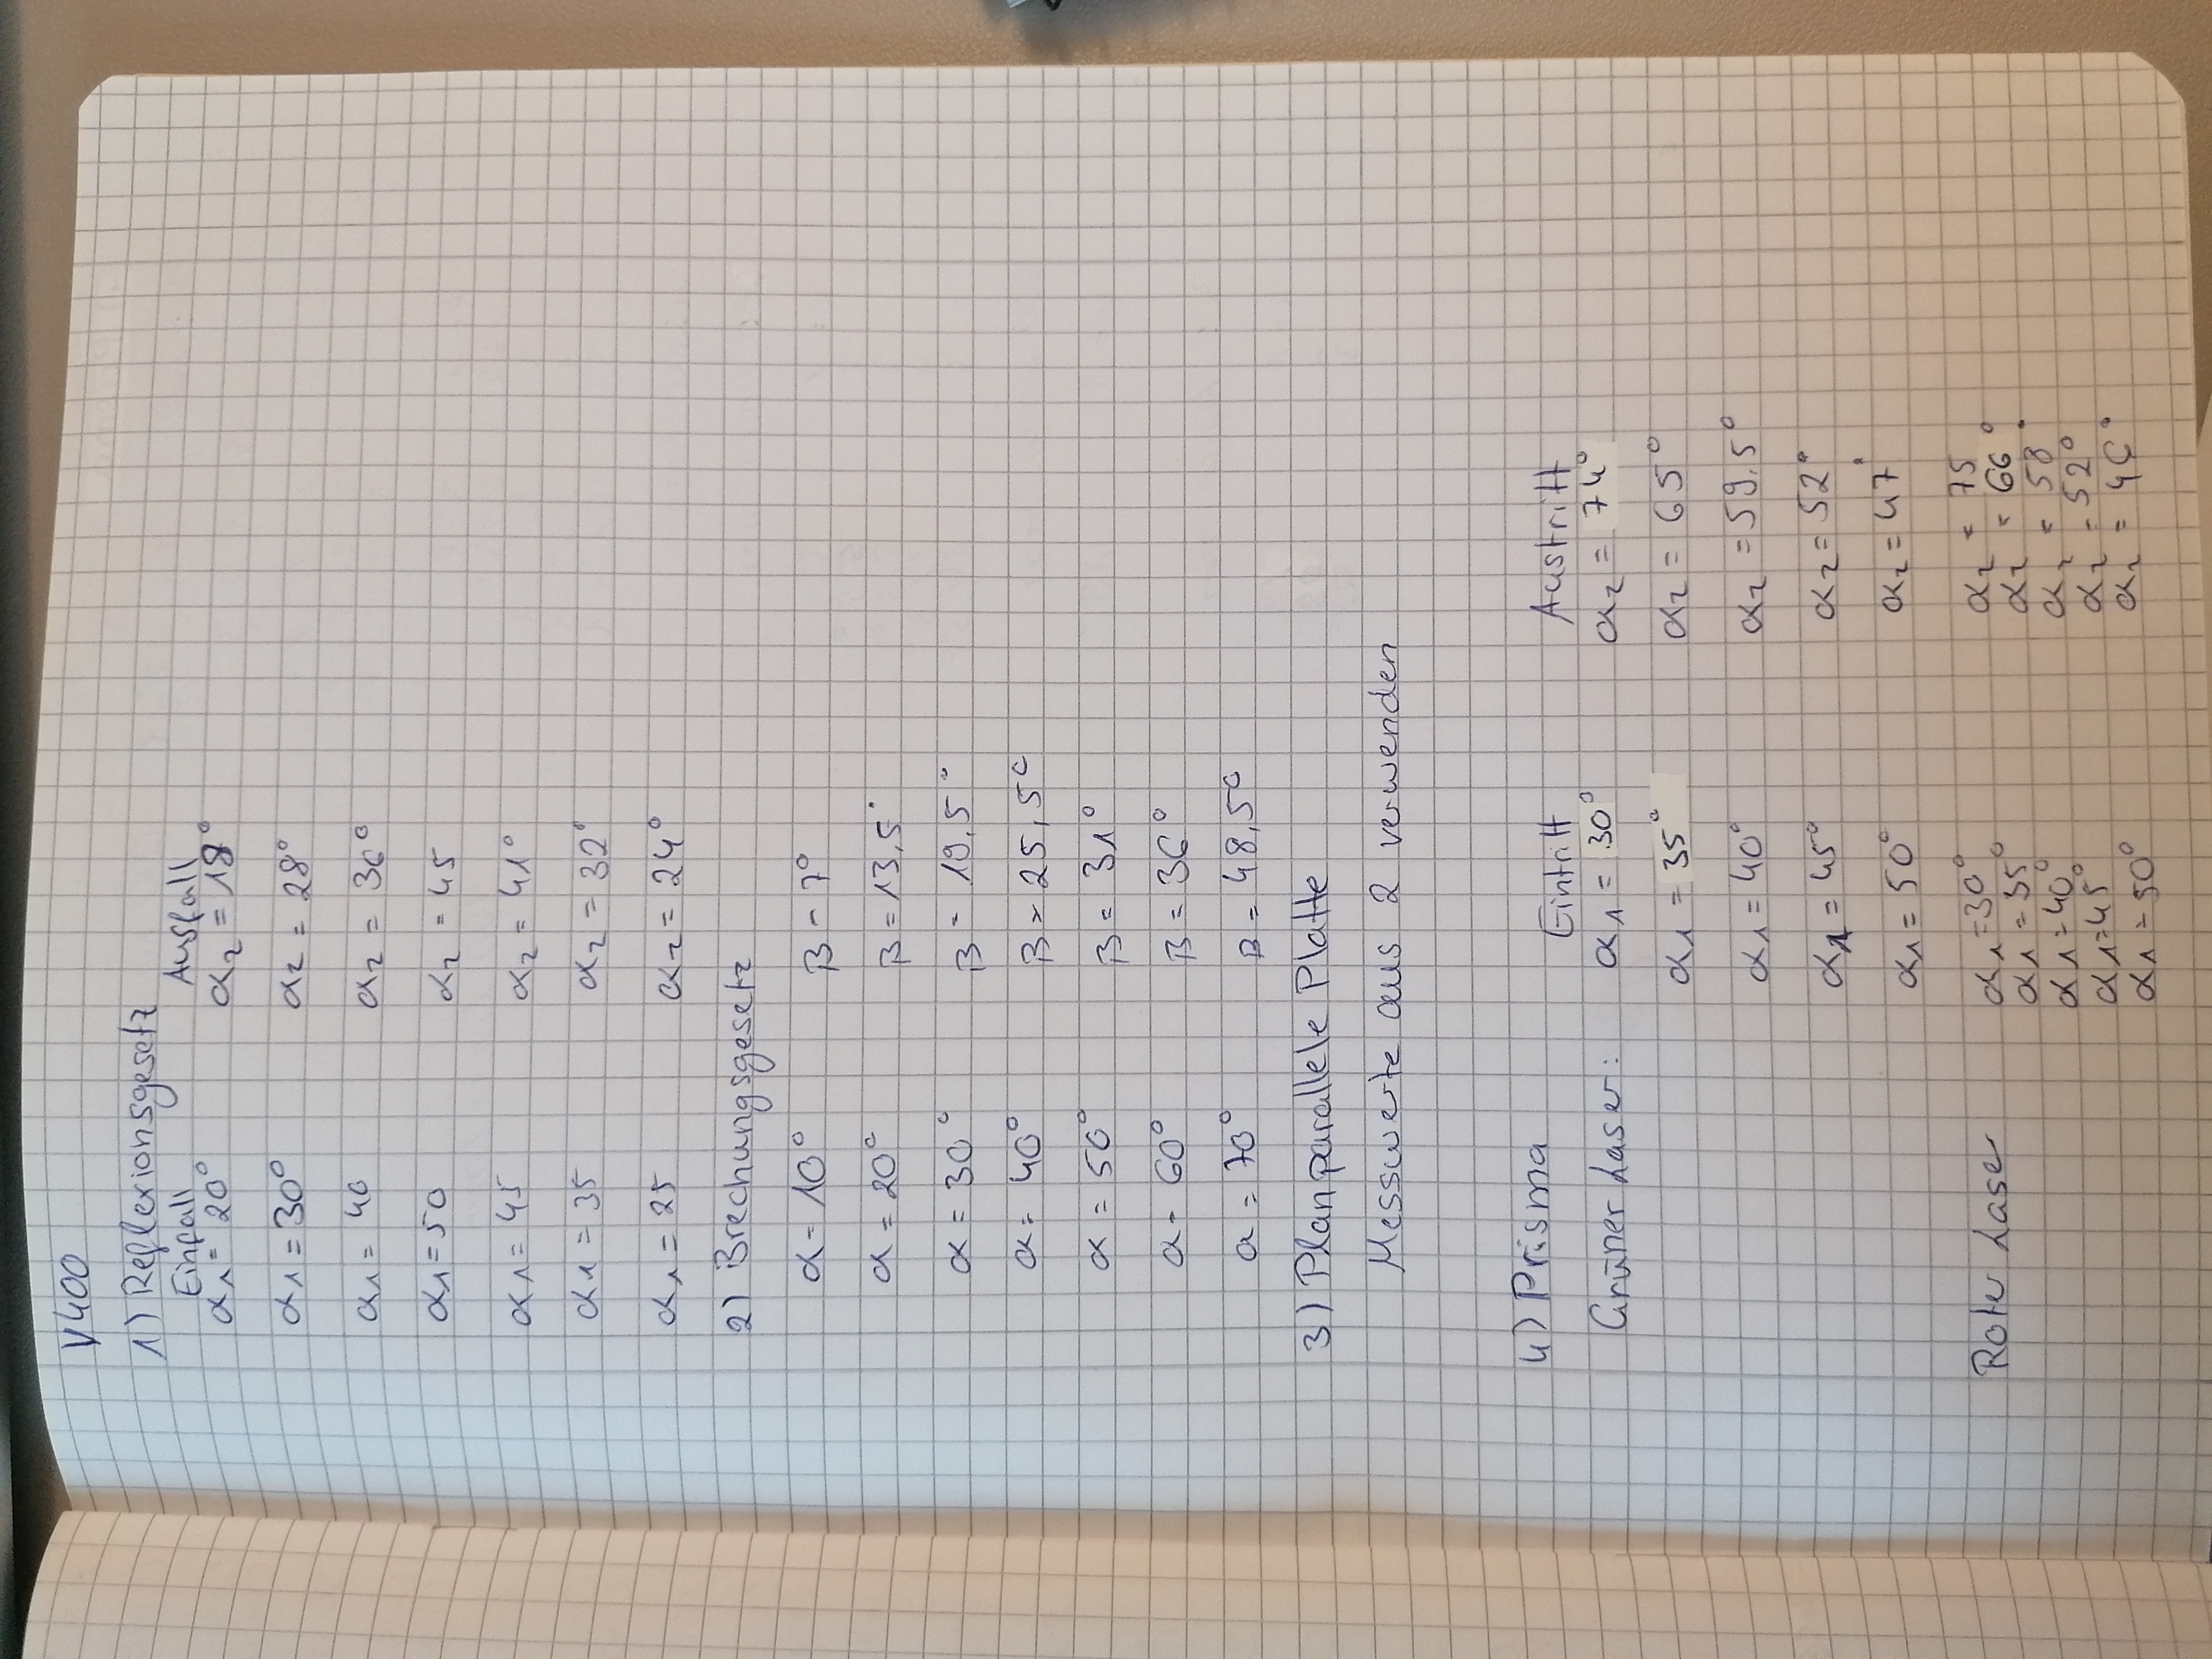 V400
1) Reflexionsgesetz
Einfall Ausfall
α1 = 20° α2 = 18°
α1 = 30° α2 = 28°
α1 = 40 α2 = 36°
α1 = 50 α2 = 45
α1 = 45 α2 = 41°
α1 = 35 α2 = 32°
α1 = 25 α2 = 24°
2) Brechungsgesetz
α = 10° β = 7°
α = 20° β = 13,5°
α = 30° β = 19,5°
α = 40° β = 25,5°
α = 50° β = 31°
α = 60° β = 36°
α = 70° β = 48,5°
3) Planparallele Platte
Messwerte aus 2 verwenden
4) Prisma Eintritt Austritt
Grüner Laser: α1 = 30° α2 = 74°
α1 = 35° α2 = 65°
α1 = 40° α2 = 59,5°
α1 = 45° α2 = 52°
α1 = 50° α2 = 47°
Roter Laser α1 = 30° α2 = 75
α1 = 35° α2 = 66°
α1 = 40° α2 = 58°
α1 = 45° α2 = 52°
α1 = 50° α2 =